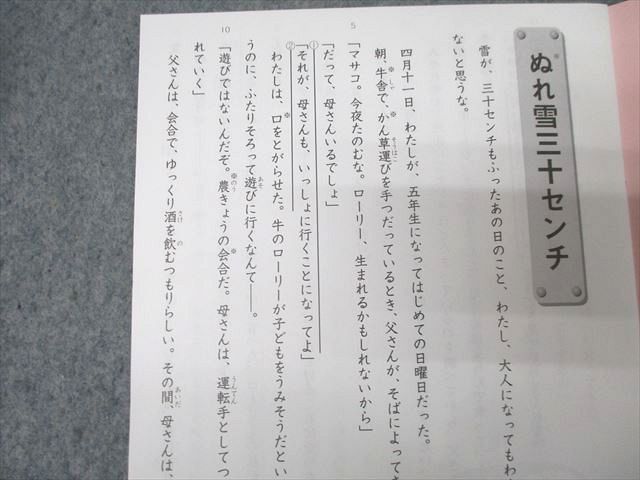 ぬれ雪三十センチ
雪が、三十センチもふったあの日のこと、わたし、大人になってもわ
ないと思うな。
四月十一日、わたしが、五年生になってはじめての日曜日だった。
朝、牛舎で、かん草運びを手つだっているとき、父さんが、そばによってき
「マサコ。今夜たのむな。ローリー、生まれるかもしれないから」
「だって、母さんいるでしょ」
「それが、母さんも、いっしょに行くことになってよ」
わたしは、口をとがらせた。牛のローリーが子どもをうみそうだとい
うのに、ふたりそろって遊びに行くなんて――。
「遊びではないんだぞ。農きょうの会合だ。母さんは、運転手としてつ
れていく」
父さんは、会合で、ゆっくり酒を飲むつもりらしい。その間、母さんは、